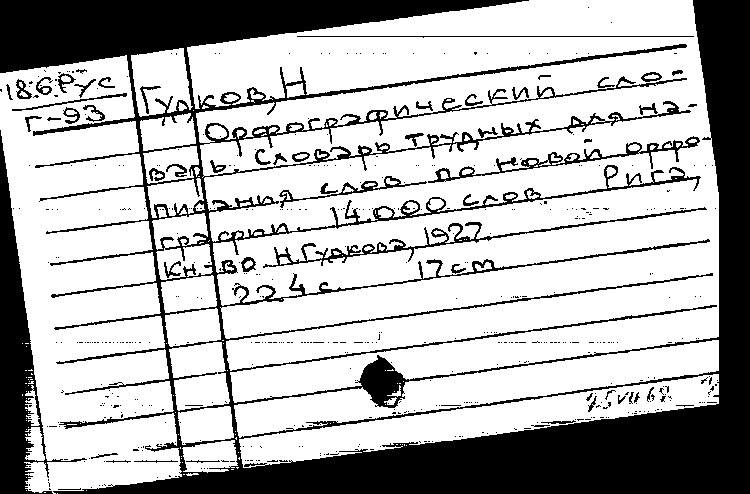 18.6.Рус
Г-93
Гудков, Н
Орфографический сло-
варь. Словарь трудных для на-
писания слов по новой орфо-
графии. 14.000 слов. Рига,
Кн.-во Н.Гудкова, 1927.
224 с. 17 cm
25 VII 68